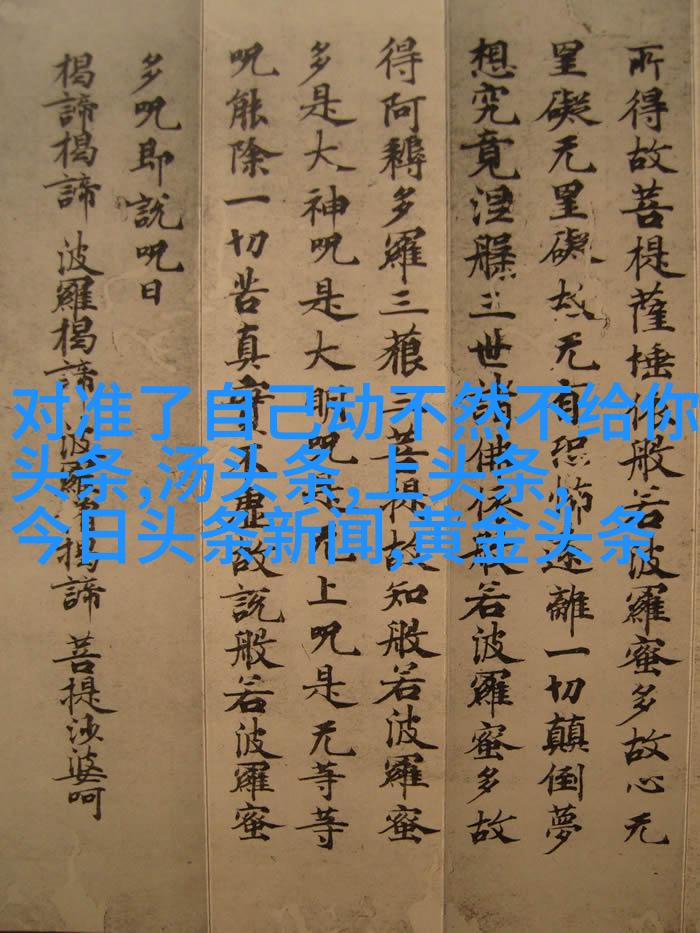 所得故菩提薩埵依般若波羅蜜多故心无
罣礙无罣礙故无有恐怖遠離一切顛倒夢
想究竟涅槃三世諸佛依般若波羅蜜多故
得阿耨多羅三藐三菩提故知般若波羅蜜
多是大神呪是大明呪是无上呪是无等等
呪能除一切苦真實不虛故說般若波羅蜜
多呪即說呪曰
揭諦揭諦 波羅揭諦 波羅僧揭諦 菩提沙婆呵
对准了自己动不然不给你
头条,汤头条,上头条,
今日头条新闻,黄金头条